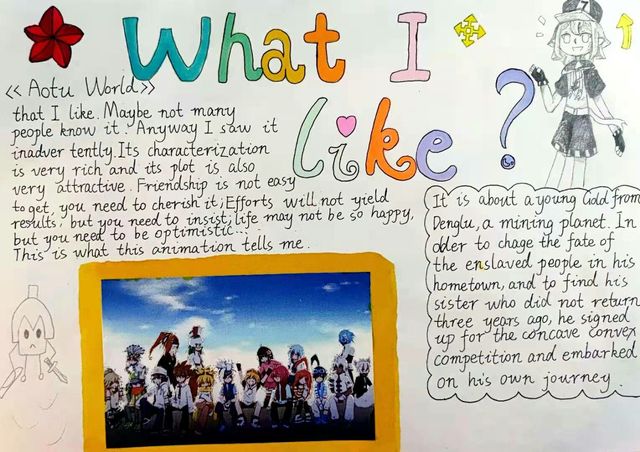 What I
like?
<< Aotu World>>
that I like. Maybe not many
people know it. Anyway I saw it
inadver tently. Its characterization
is very rich and its plot is also
very attractive. Friendship is not easy
to get, you need to cherish it; Efforts will not yield
results, but you need to insist; life may not be so happy,
but you need to be optimistic...
This is what this animation tells me.
It is about a young Gold from
Denglu, a mining planet. In
older to chage the fate of
the enslaved people in his
hometown, and to find his
sister who did not return
three years ago, he signed
up for the concave convex
competition and embarked
on his own journey.
7